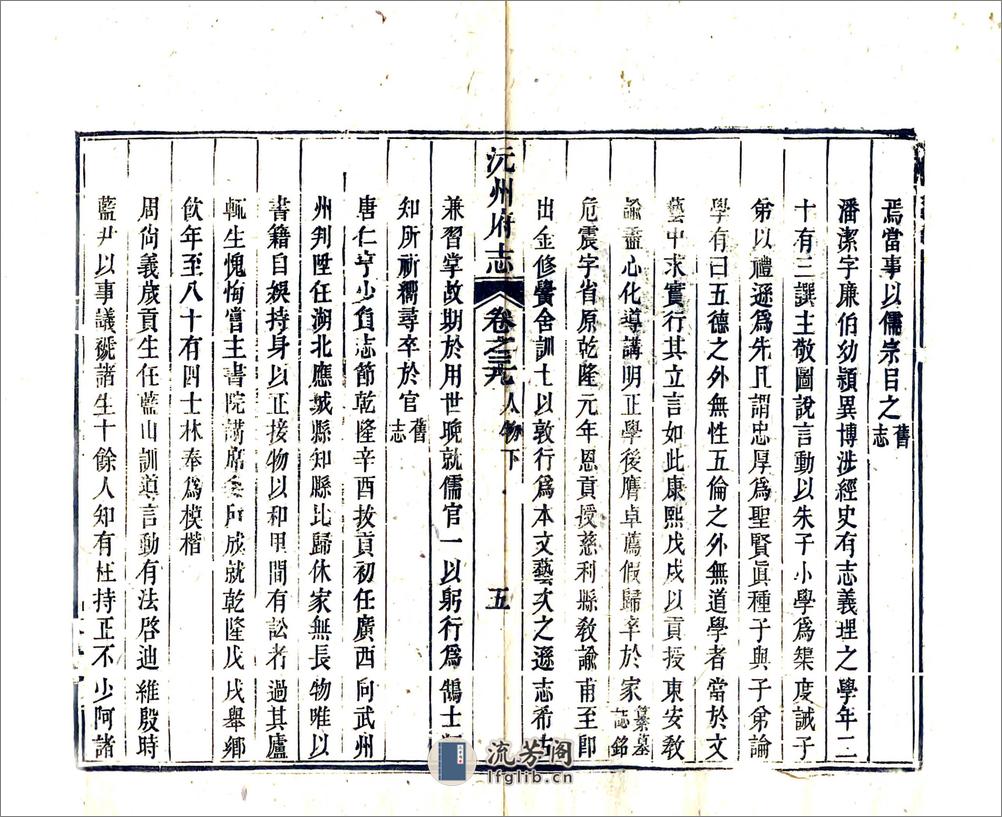 焉當事以儒宗目之舊志
潘潔字廉伯幼穎異博涉經史有志義理之學年二
十有三譔主敬圖說言動以朱子小學爲榘度誡子
弟以禮遜爲先且謂忠厚爲聖賢眞種子與子弟論
學有曰五德之外無性五倫之外無道學者當於文
藝中求實行其立言如此康熙戊戌以貢授東安教
諭盡心化導講明正學後膺卓薦假歸卒於家纂墓誌銘
危震字省原乾隆元年恩貢授慈利縣教諭甫至卽
出金修黌舍訓士以敦行爲本文藝次之遜志希古
沅州府志
卷之三九
人物下
五
兼習掌故期於用世晚就儒官一以躬行爲鵠士
知所祈嚮尋卒於官舊志
唐仁亨少負志節乾隆辛酉拔貢初任廣西向武州
州判陞任湖北應城縣知縣比歸休家無長物唯以
書籍自娛持身以正接物以和里間有訟者過其廬
輒生愧悔嘗主書院講席多所成就乾隆戊戌舉鄉
飲年至八十有四士林奉爲模楷
周尚義歲貢生任藍山訓導言動有法啓迪維殷時
藍尹以事議褫諸生十餘人知有枉持正不少阿諸
流芳阁
lfglib.cn